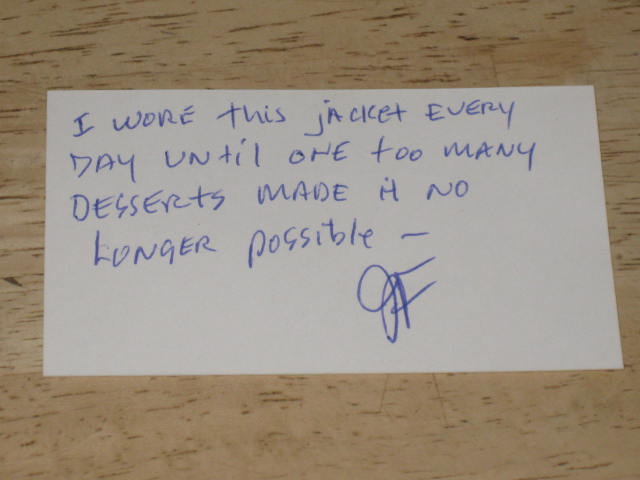 I WORE this jACKET EVERY
DAY UNtil ONE too MANY
DESSERtS MADE it NO
LONGER possible —
JF